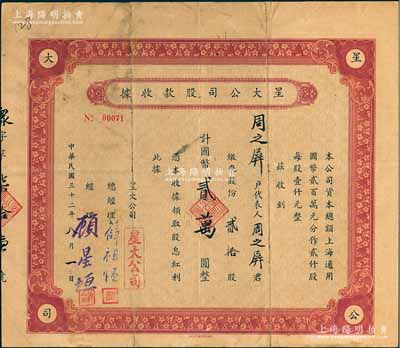 上海陽明拍賣
星大公司
星大公司股款收據
No 00071
本公司資本總額上海通用
國幣貳百萬元分作貳仟股
每股壹仟元整
茲收到
周之屏 戶代表人 周之屏 君
繳來股份 貳拾 股
計國幣 貳萬 圓整
憑本收據領取股息紅利
此據
星大公司
星大公司
總經理
經理
顧星垣
中華民國三十二年 八 月 一 日